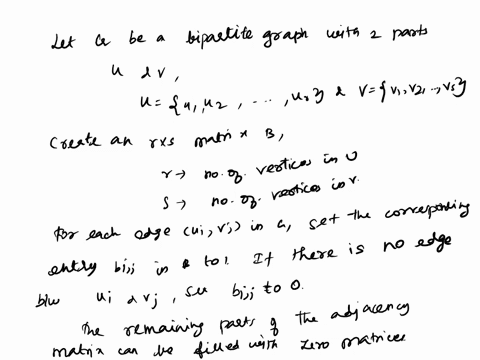 Let G be a bipartite graph with 2 parts
U & V,
U = {u1, u2, ..., ur} & V = {v1, v2, .., vs}
Create an rxs matrix B,
r → no. of vertices in U
S → no. of vertices in V.
For each edge (ui, vj) in G, set the corresponding
entry bi,j in B to 1. If there is no edge
b/w ui & vj, set bi,j to 0.
The remaining parts of the adjacency
matrix can be filled with zero matrices